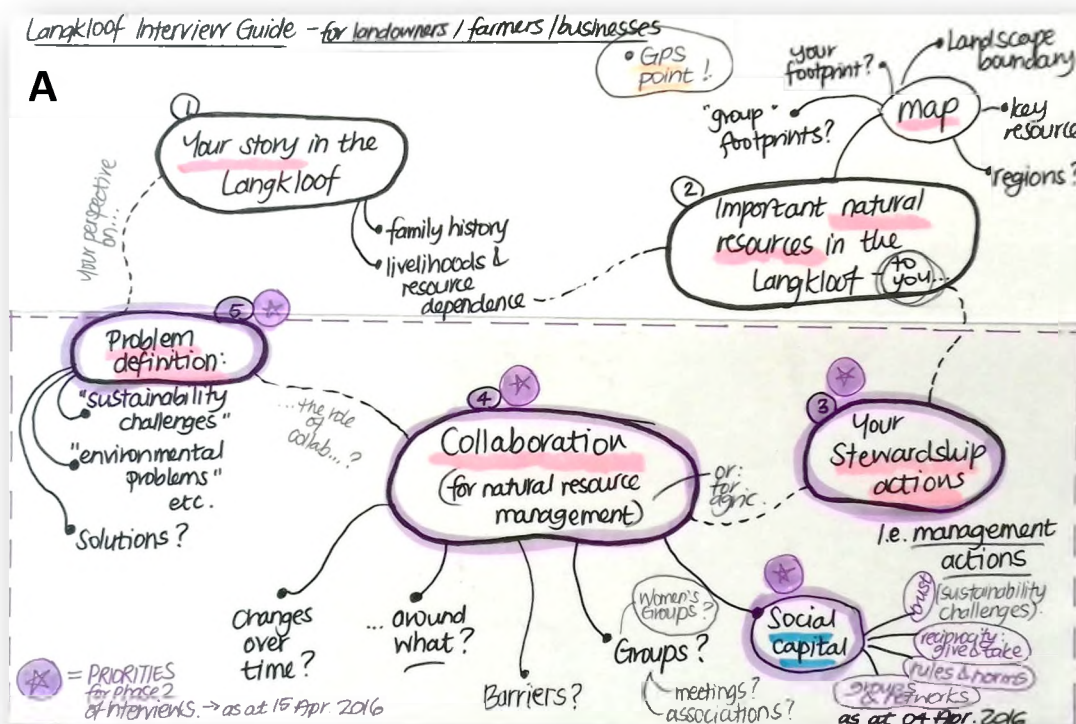 Langkloof Interview Guide - for landowners / farmers / businesses
A
GPS
point!
your
footprint?
Landscape
boundary
"group"
footprints?
map
key
resource
regions?
1
Your story in the
Langkloof
family history
livelihoods &
resource
dependence
Your perspective
on...
2
Important natural
resources in the
Langkloof - to
you...
5
Problem
definition:
"sustainability
challenges"
"environmental
problems"
etc.
Solutions?
...the role
of
collab...?
4
Collaboration
(for natural resource
management)
or:
for
agric.
3
Your
Stewardship
actions
I.e. management
actions
Changes
over
time?
... around
what?
Barriers?
Women's
Groups?
Groups?
meetings?
associations?
Social
Capital
trust
(sustainability
challenges).
reciprocity:
give & take
rules & norms
groups
& networks
as at 04 Apr. 2016
= PRIORITIES
for phase 2
of interviews. → as at 15 Apr. 2016